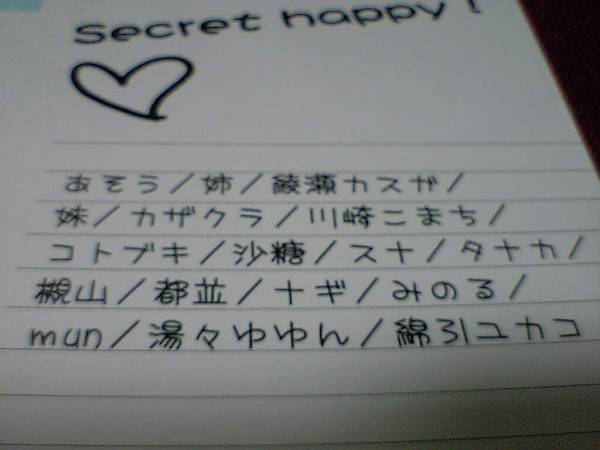 Secret happy !
あそう／姉／綾瀬カスガ／
妹／カザクラ／川崎こまち／
コトブキ／沙糖／スナ／タナカ／
槻山／都並／ナギ／みのる／
mun／湯々ゆゆん／綿引ユカコ